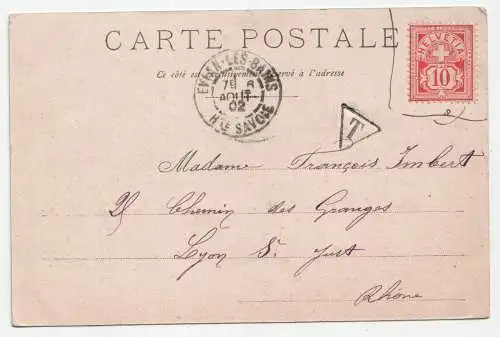 CARTE POSTALE
Ce côté est exclusivement réservé à l'adresse
HELVETIA
10
EVIAN-LES-BAINS
6
AOUT
02
Hte SAVOIE
T
Madame François Imbert
25 Chemin des Granges
Lyon St Just
Rhône